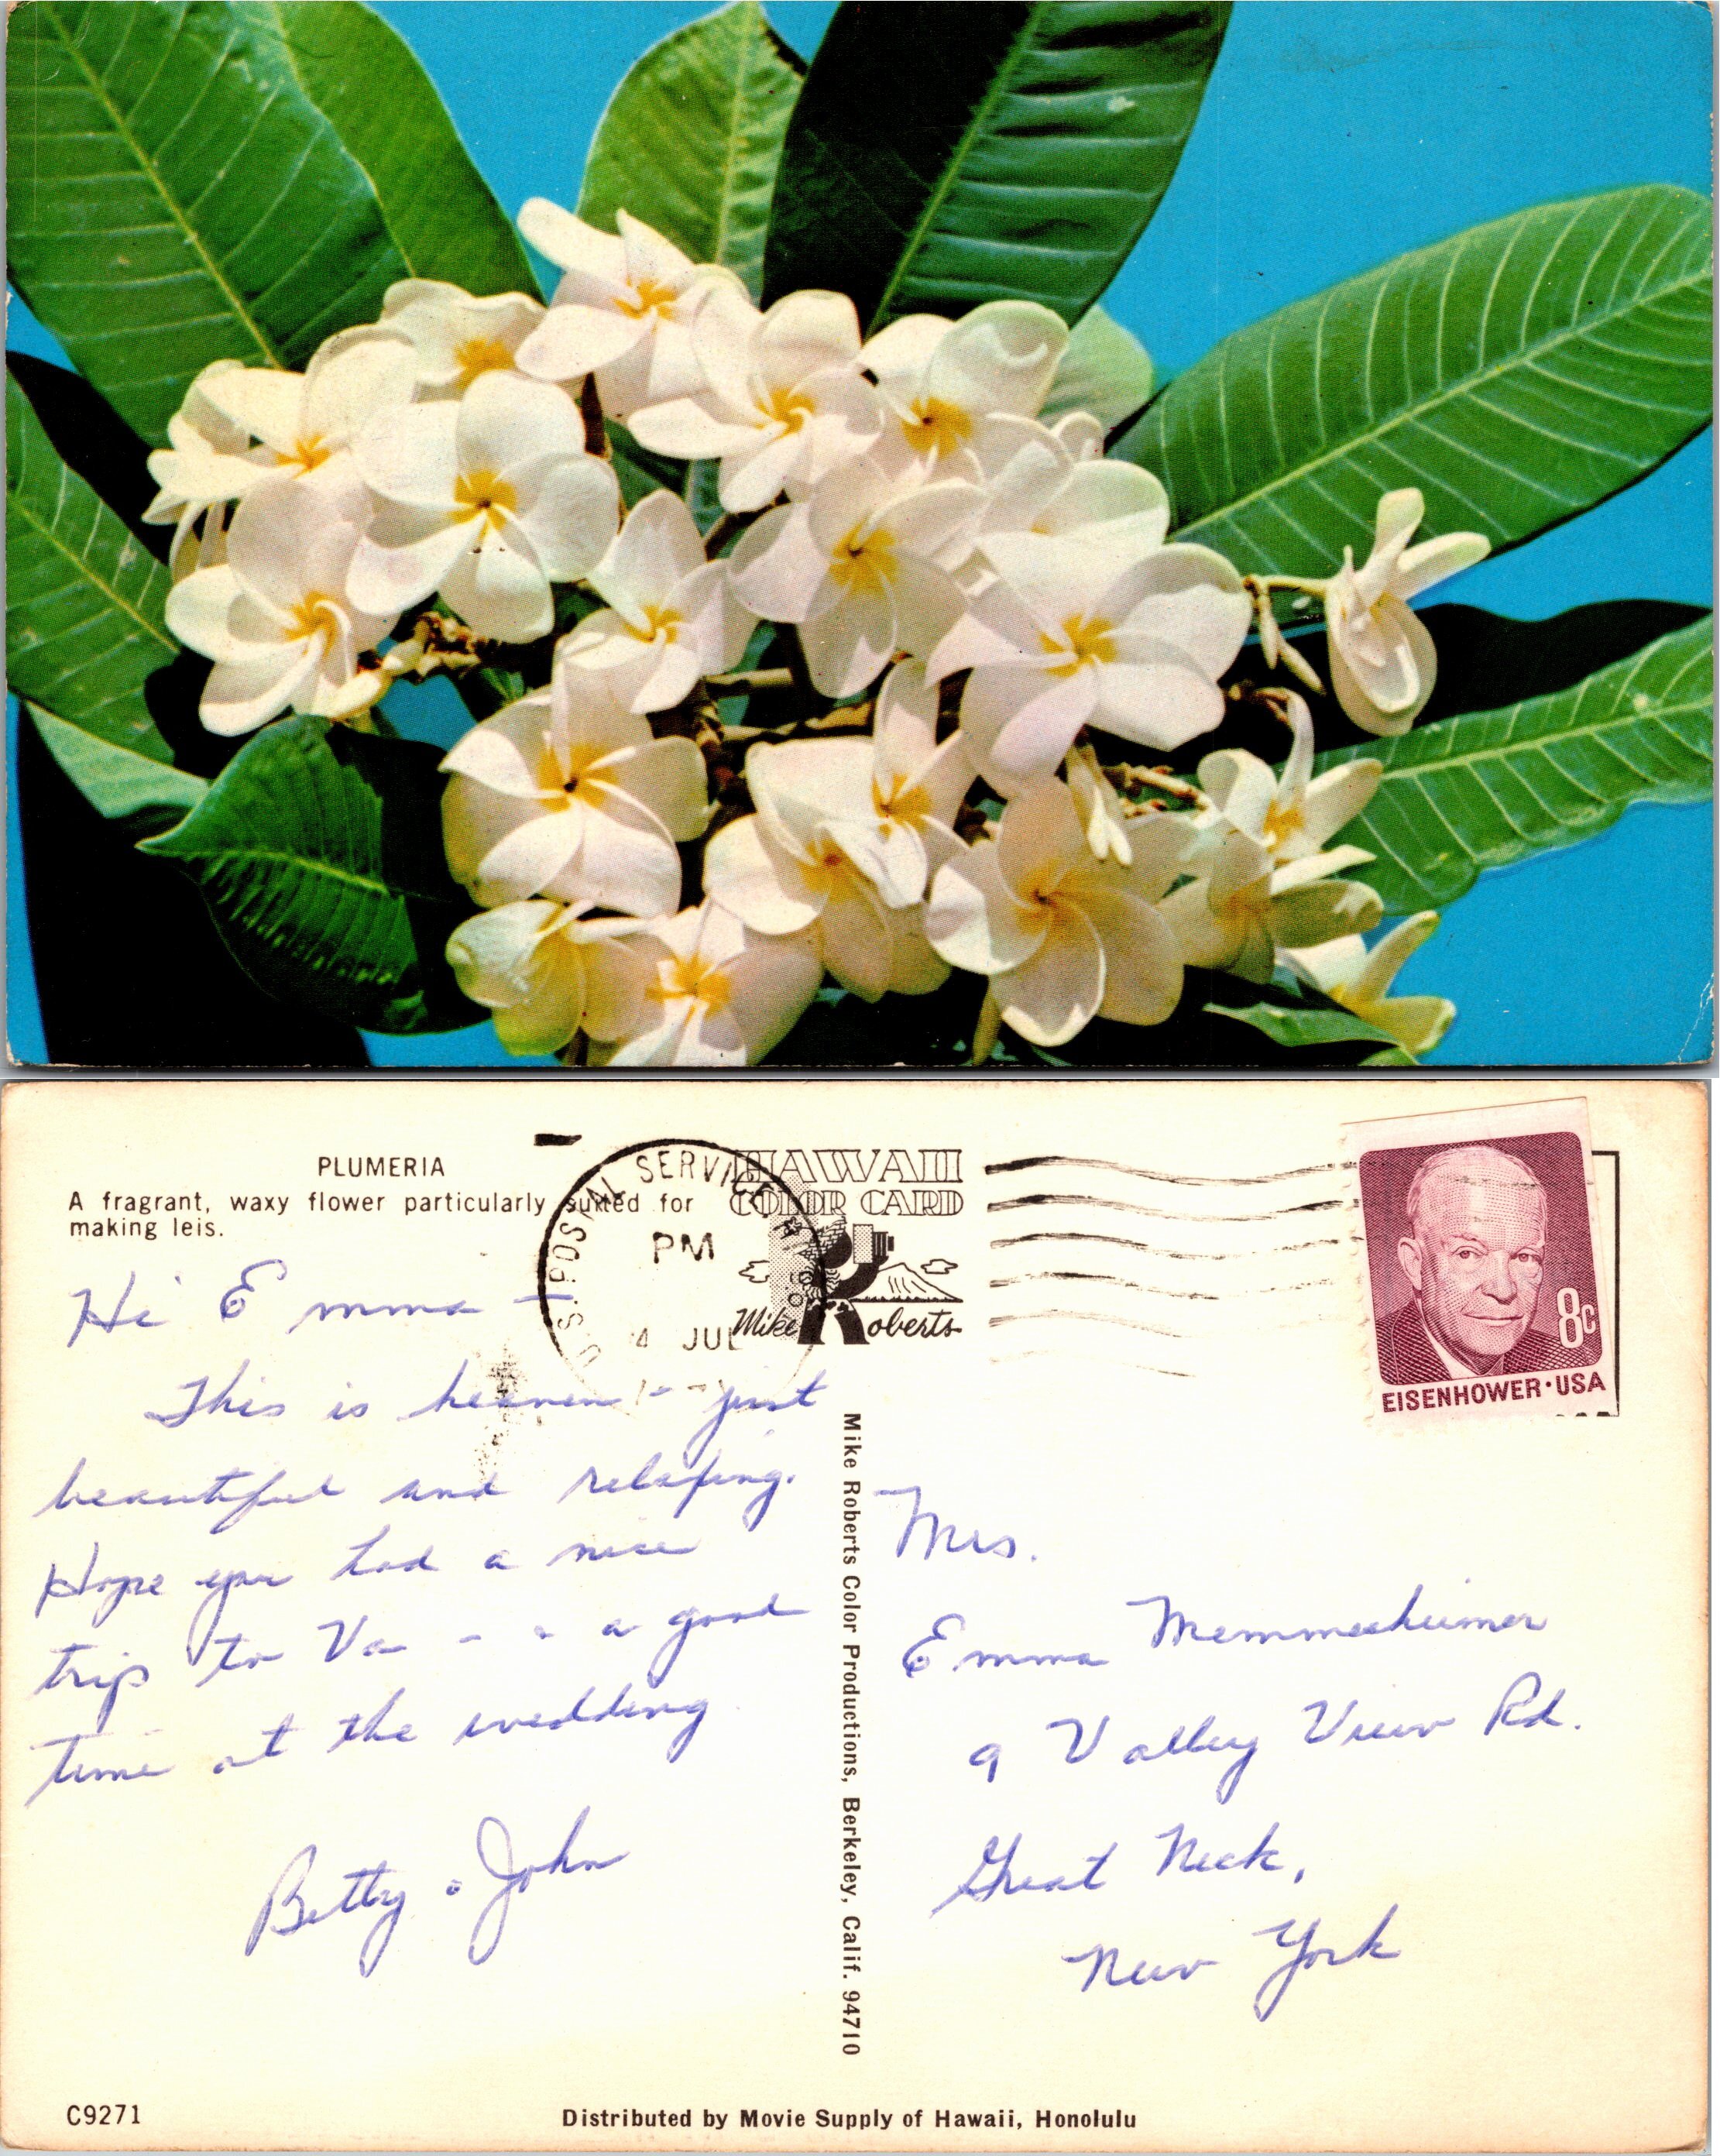 PLUMERIA
A fragrant, waxy flower particularly suited for
making leis.
HAWAII
COLOR CARD
Mike Roberts
U.S. POSTAL SERVICE
PM
4 JUL
8c
EISENHOWER·USA
Hi Emma -
This is heaven - just
beautiful and relaxing.
Hope you had a nice
trip to Va - - a good
time at the wedding
Betty & John
Mike Roberts Color Productions, Berkeley, Calif. 94710
Mrs.
Emma Memmesheimer
9 Valley View Rd.
Great Neck,
New York
C9271
Distributed by Movie Supply of Hawaii, Honolulu